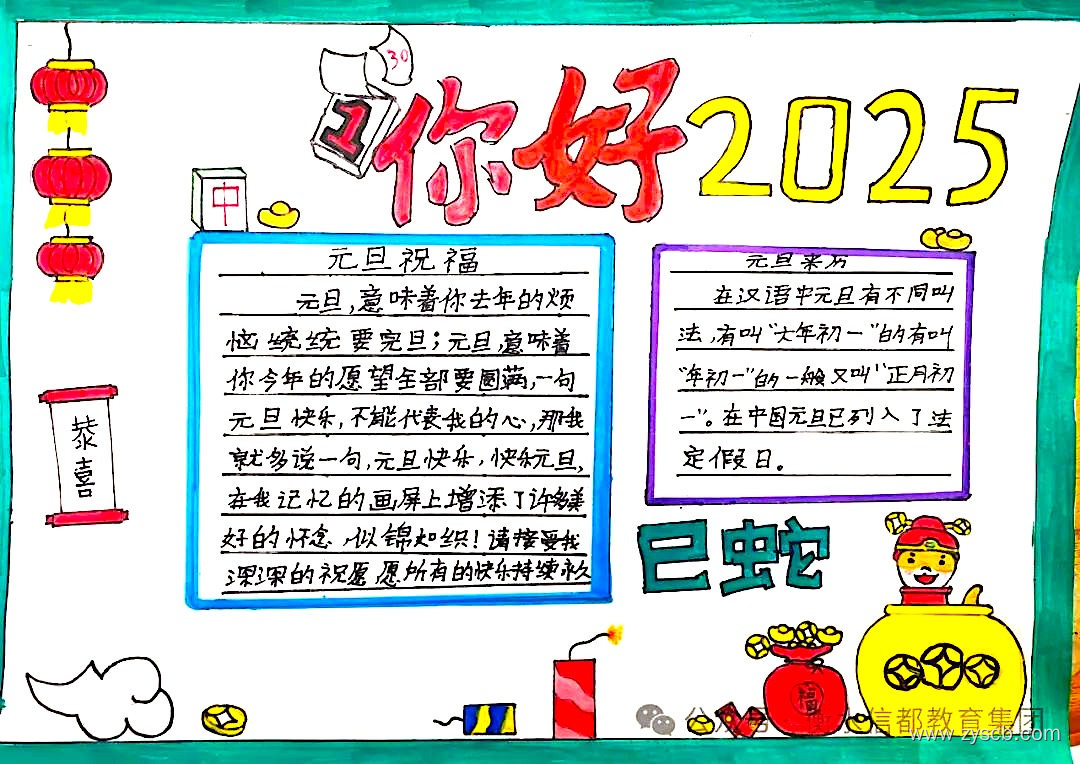 30
1
你好2025
中
元旦祝福
元旦,意味着你去年的烦
恼统统要完旦;元旦,意味着
你今年的愿望全部要圆满,一句
元旦快乐,不能代表我的心,那我
就多说一句,元旦快乐,快乐元旦,
在我记忆的画屏上增添了许多美
好的怀念,似锦如织!请接受我
深深的祝愿,愿所有的快乐持续永久
元旦来历
在汉语中元旦有不同叫
法,有叫"大年初一"的有叫
"年初一"的一般又叫"正月初
一"。在中国元旦已列入了法
定假日。
恭喜
巳蛇
福
信都教育集团
www.zyscb.com